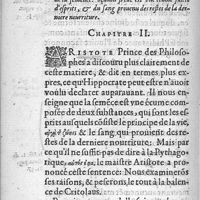 d'esprits, & du sang prouenu des restes de la der-
niere nourriture.
CHAPITRE II.
ARISTOTE Prince des Philoso-
phes a discouru plus clairement de
ceste matiere, & dit en termes plus ex-
prez, ce qu'Hippocrate peut estre n'auoit
voulu declarer auparauant. Il nous en-
seigne que la semēce est vne ēcume com-
posee de deux substances, qui sont les es-
prits, ausquels consiste le principe de la vie,
& le sang, qui prouient des re-
stes de la derniere nourriture. Mais par ce
qu'il ne faut pas dire à la Pythago-
rique, le maistre Aristote a pro-
noncé ceste sentence: Nous examinerōs
ses raisons, & peserons le tout à la balen-
ce de Critolaus.